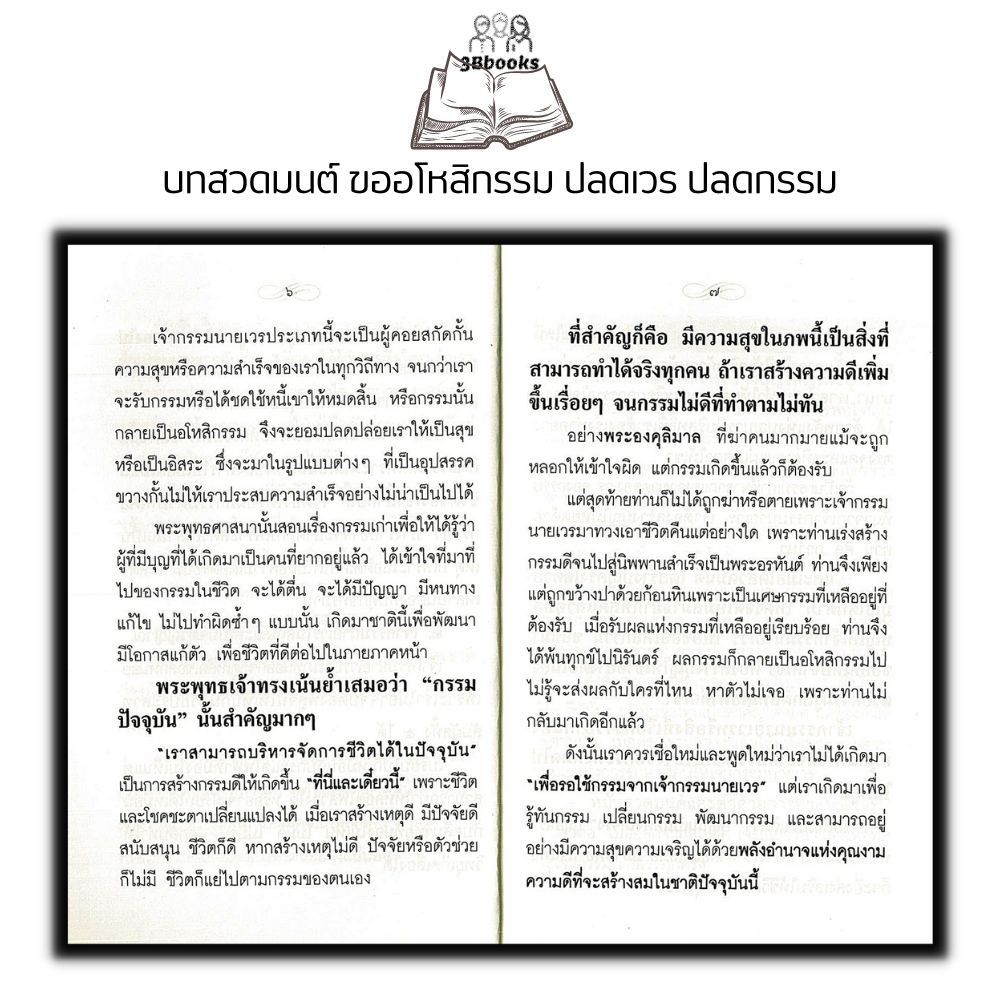 3Bbooks
บทสวดมนต์ ขออโหสิกรรม ปลดเวร ปลดกรรม
๖
เจ้ากรรมนายเวรประเภทนี้จะเป็นผู้คอยสกัดกั้น
ความสุขหรือความสำเร็จของเราในทุกวิถีทาง จนกว่าเรา
จะรับกรรมหรือได้ชดใช้หนี้เขาให้หมดสิ้น หรือกรรมนั้น
กลายเป็นอโหสิกรรม จึงจะยอมปลดปล่อยเราให้เป็นสุข
หรือเป็นอิสระ ซึ่งจะมาในรูปแบบต่างๆ ที่เป็นอุปสรรค
ขวางกั้นไม่ให้เราประสบความสำเร็จอย่างไม่น่าเป็นไปได้
พระพุทธศาสนานั้นสอนเรื่องกรรมเก่าเพื่อให้ได้รู้ว่า
ผู้ที่มีบุญที่ได้เกิดมาเป็นคนที่ยากอยู่แล้ว ได้เข้าใจที่มาที่
ไปของกรรมในชีวิต จะได้ตื่น จะได้มีปัญญา มีหนทาง
แก้ไข ไม่ไปทำผิดซ้ำๆ แบบนั้น เกิดมาชาตินี้เพื่อพัฒนา
มีโอกาสแก้ตัว เพื่อชีวิตที่ดีต่อไปในภายภาคหน้า
พระพุทธเจ้าทรงเน้นย้ำเสมอว่า “กรรม
ปัจจุบัน” นั้นสำคัญมากๆ
“เราสามารถบริหารจัดการชีวิตได้ในปัจจุบัน”
เป็นการสร้างกรรมดีให้เกิดขึ้น “ที่นี่และเดี๋ยวนี้” เพราะชีวิต
และโชคชะตาเปลี่ยนแปลงได้ เมื่อเราสร้างเหตุดี มีปัจจัยดี
สนับสนุน ชีวิตก็ดี หากสร้างเหตุไม่ดี ปัจจัยหรือตัวช่วย
ก็ไม่มี ชีวิตก็แย่ไปตามกรรมของตนเอง
๗
ที่สำคัญก็คือ มีความสุขในภพนี้เป็นสิ่งที่
สามารถทำได้จริงทุกคน ถ้าเราสร้างความดีเพิ่ม
ขึ้นเรื่อยๆ จนกรรมไม่ดีที่ทำตามไม่ทัน
อย่างพระองคุลิมาล ที่ฆ่าคนมากมายแม้จะถูก
หลอกให้เข้าใจผิด แต่กรรมเกิดขึ้นแล้วก็ต้องรับ
แต่สุดท้ายท่านก็ไม่ได้ถูกฆ่าหรือตายเพราะเจ้ากรรม
นายเวรมาทวงเอาชีวิตคืนแต่อย่างใด เพราะท่านเร่งสร้าง
กรรมดีจนไปสู่นิพพานสำเร็จเป็นพระอรหันต์ ท่านจึงเพียง
แต่ถูกขว้างปาด้วยก้อนหินเพราะเป็นเศษกรรมที่เหลืออยู่ที่
ต้องรับ เมื่อรับผลแห่งกรรมที่เหลืออยู่เรียบร้อย ท่านจึง
ได้พ้นทุกข์ไปนิรันดร์ ผลกรรมก็กลายเป็นอโหสิกรรมไป
ไม่รู้จะส่งผลกับใครที่ไหน หาตัวไม่เจอ เพราะท่านไม่
กลับมาเกิดอีกแล้ว
ดังนั้นเราควรเชื่อใหม่และพูดใหม่ว่าเราไม่ได้เกิดมา
“เพื่อรอใช้กรรมจากเจ้ากรรมนายเวร” แต่เราเกิดมาเพื่อ
รู้ทันกรรม เปลี่ยนกรรม พัฒนากรรม และสามารถอยู่
อย่างมีความสุขความเจริญได้ด้วยพลังอำนาจแห่งคุณงาม
ความดีที่จะสร้างสมในชาติปัจจุบันนี้